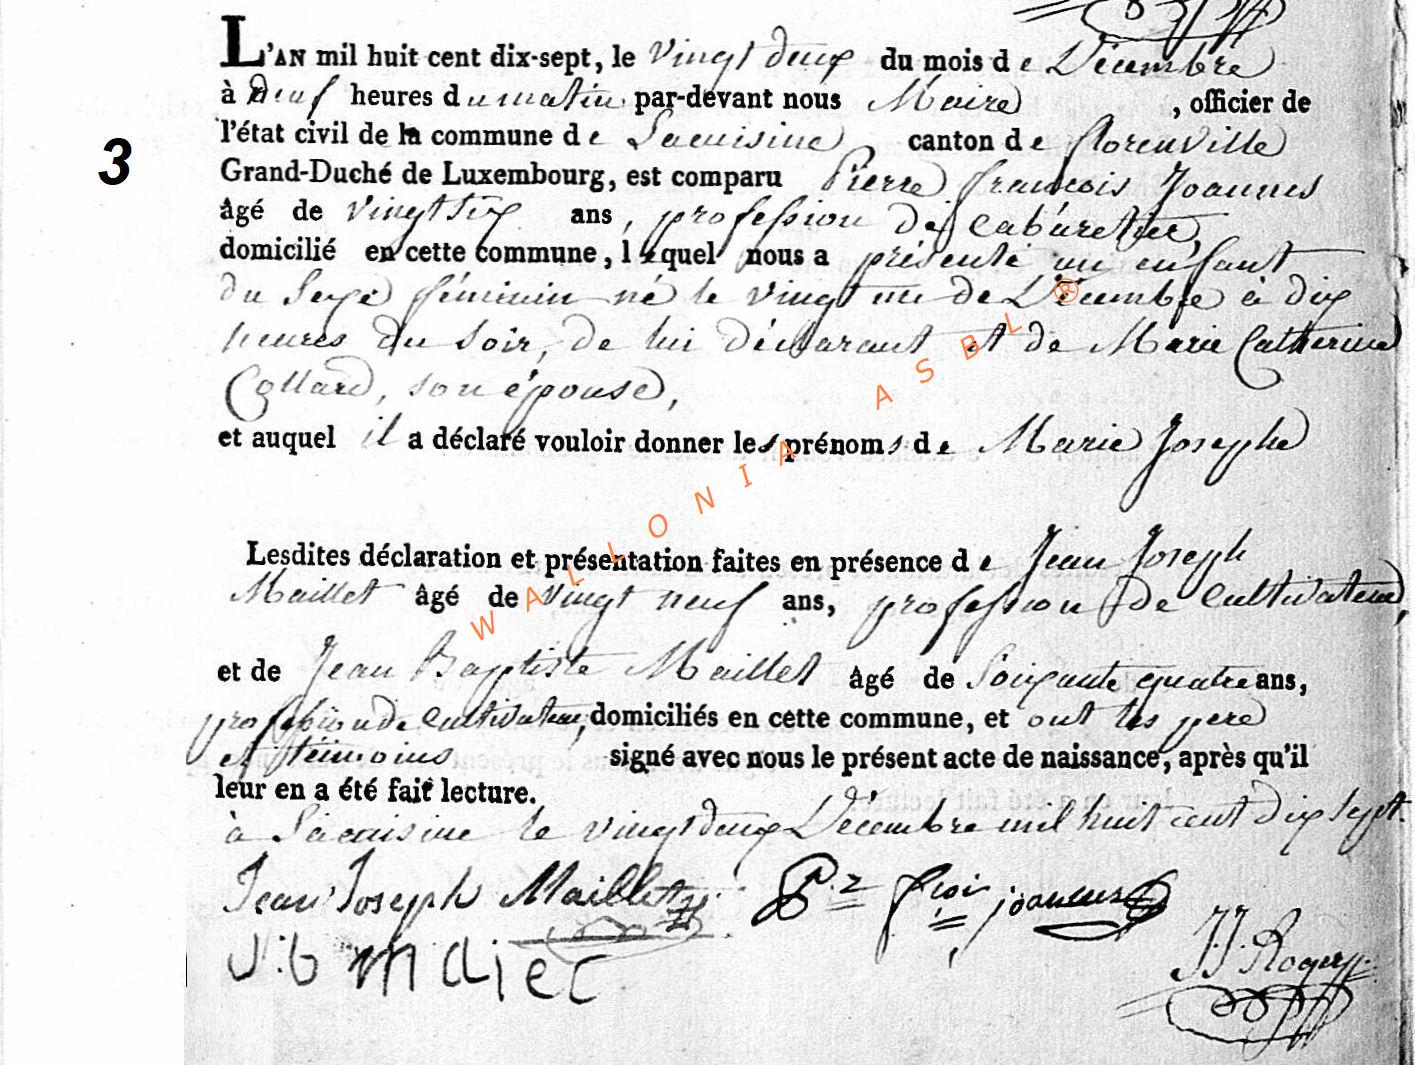 L'AN mil huit cent dix-sept, le vingt deux du mois de Décembre
à neuf heures du matin par-devant nous Maire, officier de
l'état civil de la commune de Lacuisine canton de florenville
3
Grand-Duché de Luxembourg, est comparu Pierre françois Joannes
âgé de vingt six ans, profession de Cabaretier,
domicilié en cette commune, lequel nous a présenté un enfant
du Sexe féminin né le vingt un de Décembre à dix
heures du soir, de lui déclarant et de Marie Catherine
Collard, son épouse,
et auquel il a déclaré vouloir donner les prénoms de Marie Josephe
WALLONIA ASBL ®
Lesdites déclaration et présentation faites en présence de Jean Joseph
Maillet âgé de vingt neuf ans, profession de Cultivateur,
et de Jean Baptiste Maillet âgé de Soixante quatre ans,
profession de Cultivateur, domiciliés en cette commune, et ont les pere
et témoins signé avec nous le présent acte de naissance, après qu'il
leur en a été fait lecture.
à Lacuisine le vingt deux Décembre mil huit cent dix sept.
Jean Joseph Maillet
P.re frçois joannes
J.B maiet
J.J. Roger